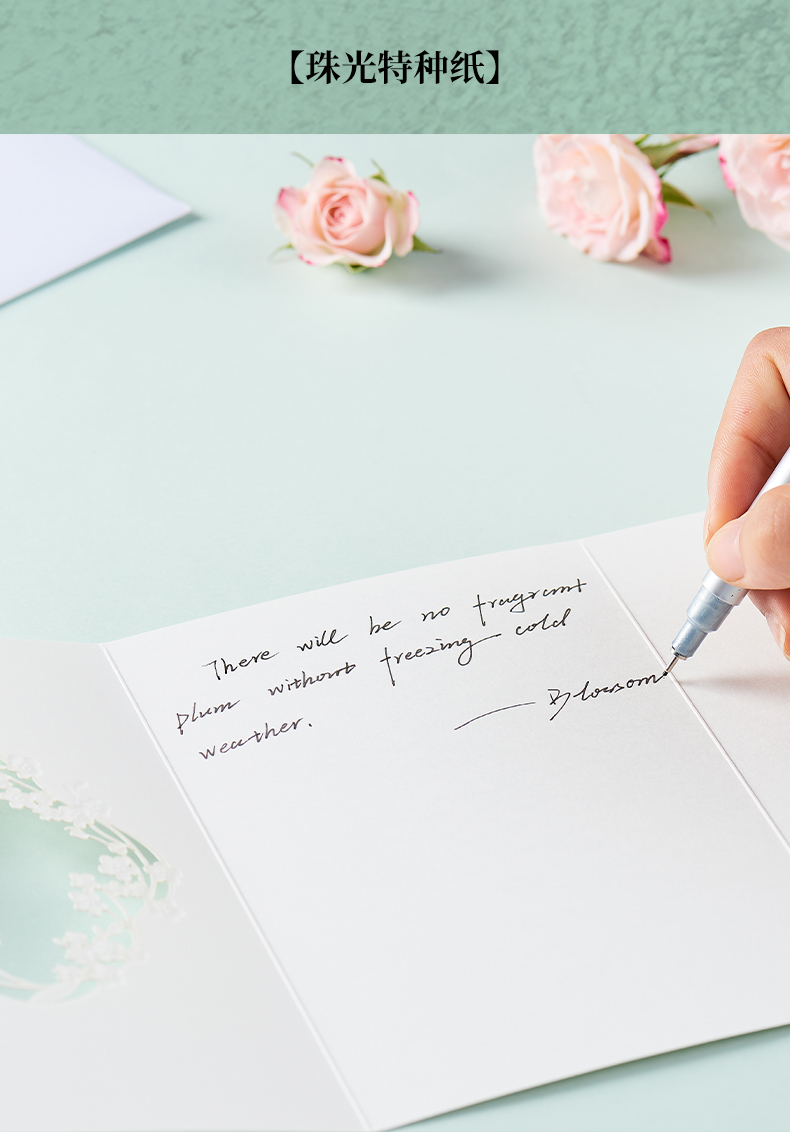 【珠光特种纸】
There will be no fragrant
plum without freezing cold
weather.
— Blossom